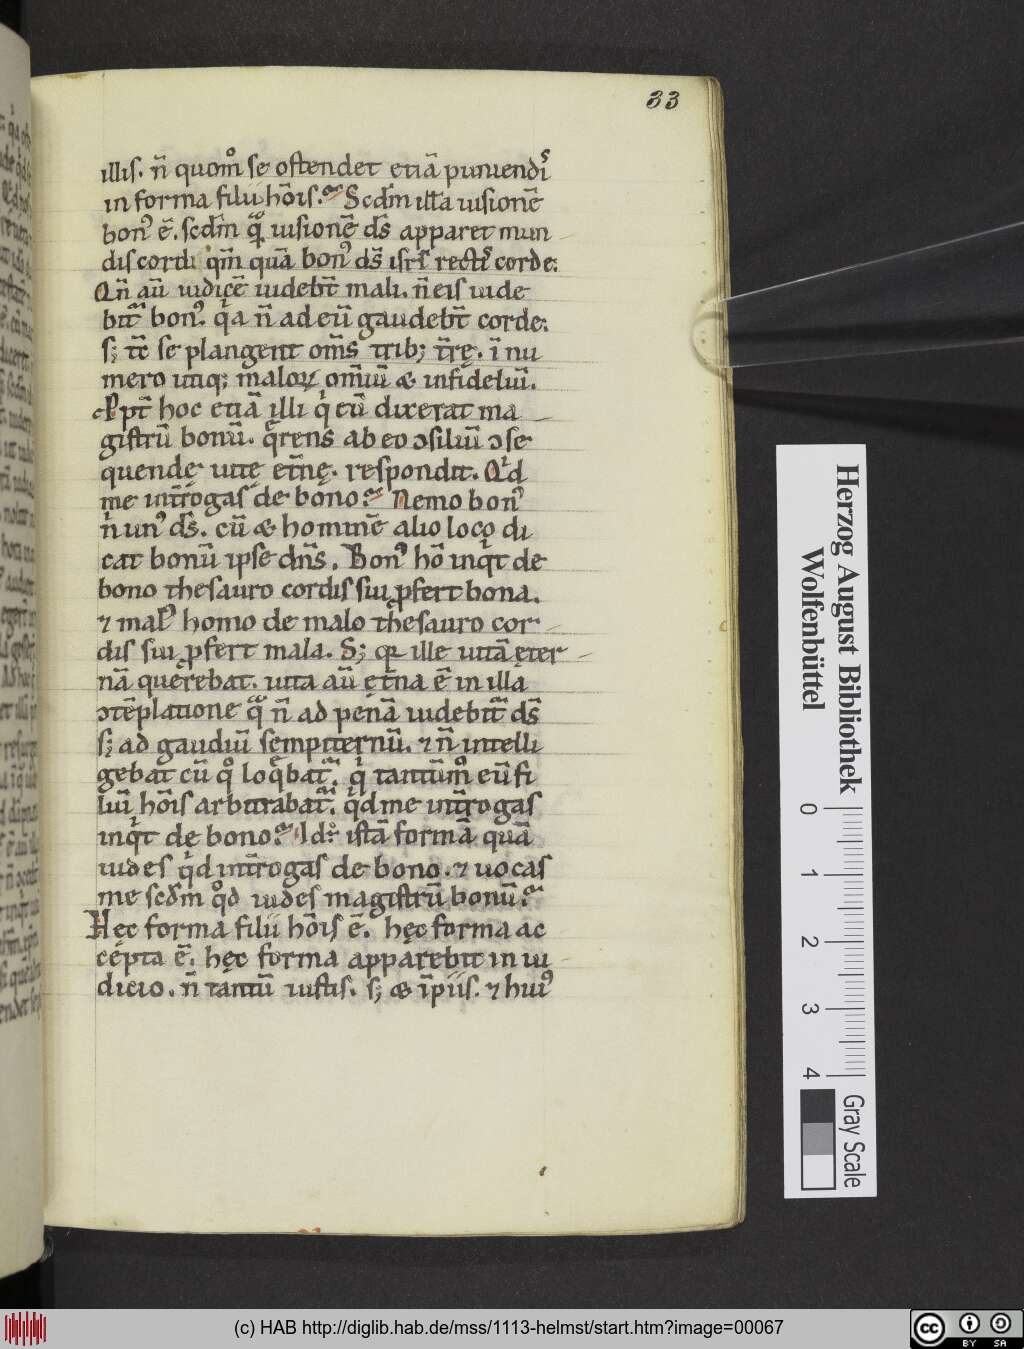 33
illis. n̄ quomͦ se ostendet etiā puniendıˢ
in forma filii hōis. Scdm̄ illā uisionē
bonꝰ ē. scdm̄ qͣ̄ uisionē ds̄ apparet mun
discordi qm̄ quā bonꝰ ds̄ isrl̄ rectıˢ corde:
Qn̄ aū iudicē uidebt̄ mali. n̄ eis uide
bitͬ bonꝰ. qͥa n̄ ad eū gaudebt̄ corde:
s; tc̄ se plangent om̄s trib; tr̄ę. ī nu
mero utiq; maloꝝ om̄iū & infideliū.
Ppt̄ hoc etiā illi qͥ eū dixerat ma
gistrū bonū. qͣrens ab eo ɔsiliū ɔse
quendę uitę etn̄ę. respondit. Qͥd
me int̄rogas de bono? Nemo bonꝰ
n̄ unꝰ ds̄. cū & hominē alio loco di
cat bonū ipse dn̄s. Bonꝰ hō inqͥt de
bono thesauro cordis sui ꝓfert bona.
⁊ malꝰ homo de malo thesauro cor
dis sui ꝓfert mala. S; qꝛ ille uitā ęter
nā querebat. uita aū ętn̄a ē in illa
ɔtēplatione qͣ̄ n̄ ad penā uidebitͬ ds̄
s; ad gaudiū sempiternū. ⁊ n̄ intelli
gebat cū qͦ loqͣbatͬ. qͥ tantūmͦ eū fi
liū hōis arbitrabatͬ. qͥd me int̄rogas
inqͥt de bono? Id: istā formā quā
uides qͥd int̄rogas de bono. ⁊ uocas
me scdm̄ qͦd uides magistrū bonū?
Hęc forma filii hōis ē. hęc forma ac
cepta ē. hęc forma apparebit in iu
dicio. n̄ tantū iustis. s; & īpiis. ⁊ huiꝰ
Herzog August Bibliothek
Wolfenbüttel
0
1
2
3
4
Gray Scale
(c) HAB http://diglib.hab.de/mss/1113-helmst/start.htm?image=00067
cc
BY
SA